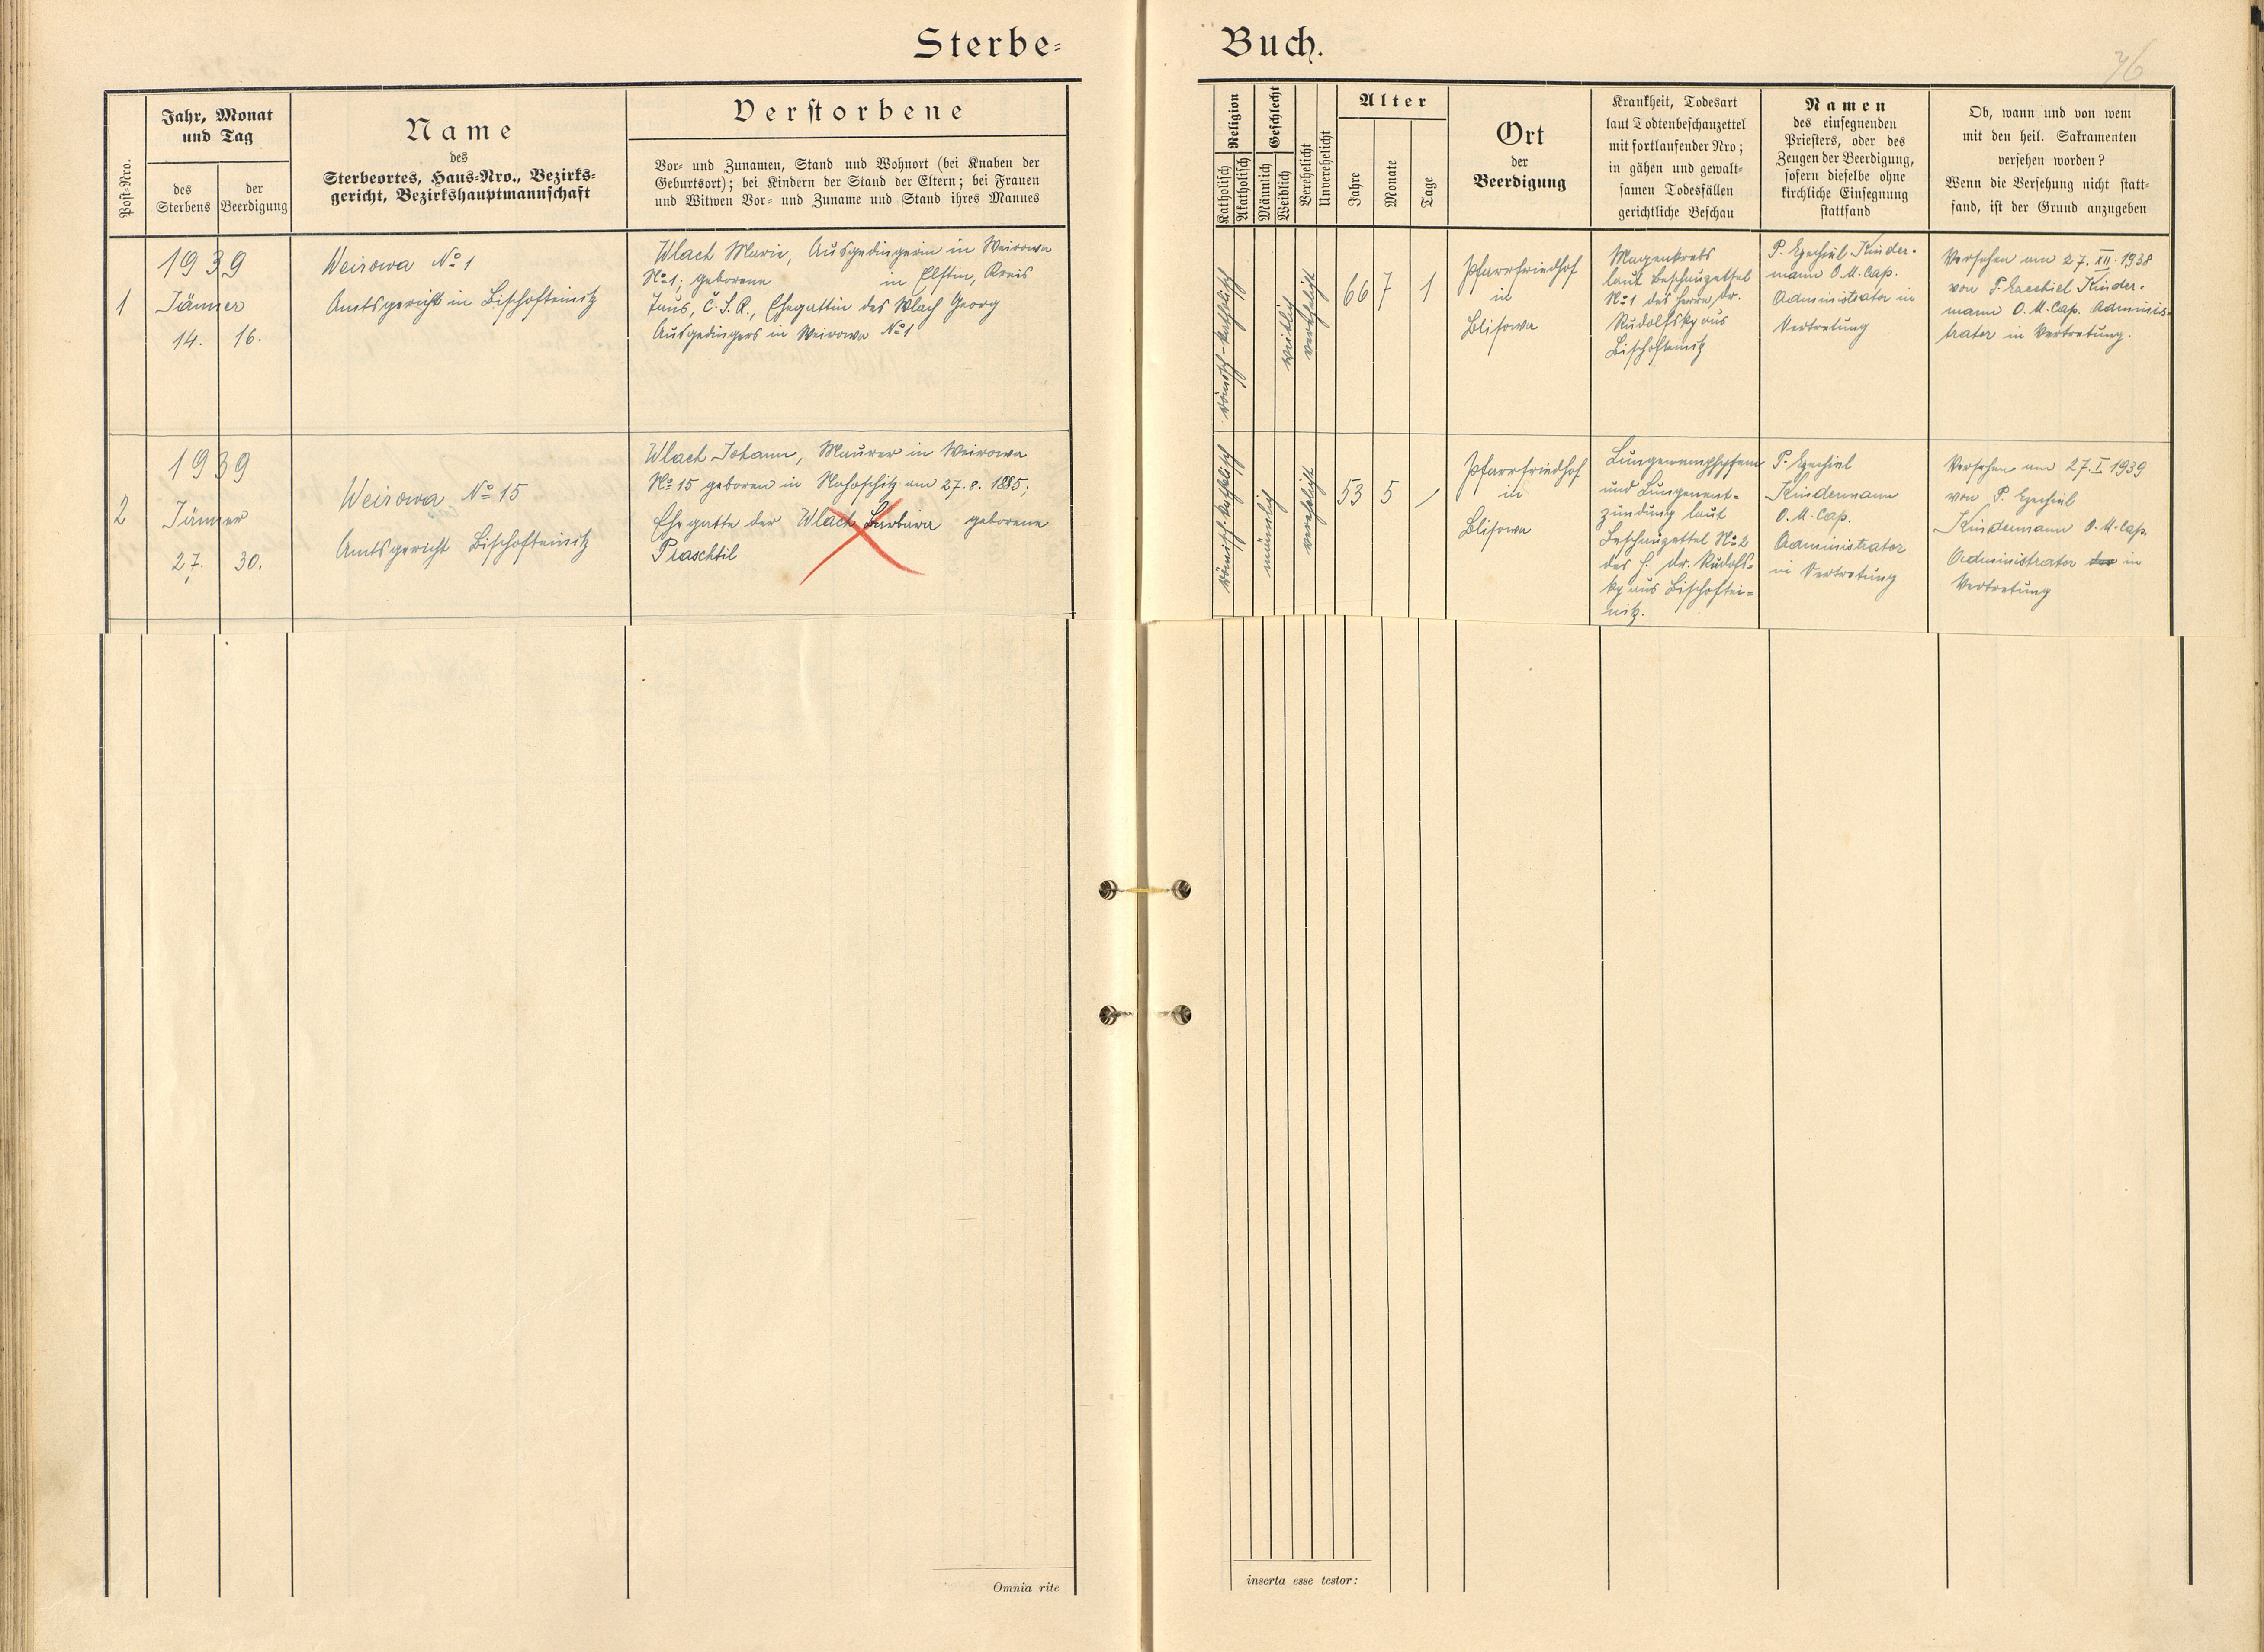 Sterbe=
Buch.
76
Post-Nro.
Jahr, Monat
und Tag
des
Sterbens
der
Beerdigung
Name
des
Sterbeortes, Haus-Nro., Bezirks-
gericht, Bezirkshauptmannschaft
Verstorbene
Vor- und Zunamen, Stand und Wohnort (bei Knaben der
Geburtsort); bei Kindern der Stand der Eltern; bei Frauen
und Witwen Vor- und Zuname und Stand ihres Mannes
Religion
Katholisch
Akatholisch
Geschlecht
Männlich
Weiblich
Verehelicht
Unverehelicht
Alter
Jahre
Monate
Tage
Ort
der
Beerdigung
Krankheit, Todesart
laut Todtenbeschauzettel
mit fortlaufender Nro;
in gähen und gewalt-
samen Todesfällen
gerichtliche Beschau
Namen
des einsegnenden
Priesters, oder des
Zeugen der Beerdigung,
sofern dieselbe ohne
kirchliche Einsegnung
stattfand
Ob, wann und von wem
mit den heil. Sakramenten
versehen worden?
Wenn die Versehung nicht statt-
fand, ist der Grund anzugeben
1
1939
Jänner
14. 16.
Weirowa No 1
Amtsgericht in Bischofteinitz
Wlach Marie, Ausgedingerin in Weirowa
No 1; geborene in Elstin, Kreis
Taus, Č.S.R., Ehegattin des Wlach Georg
Ausgedingers in Weirowa No 1
römisch-katholisch
weiblich
verehelicht
66 7 1
Pfarrfriedhof
in
Blisowa
Magenkrebs
laut Beschauzettel
No 1 des Herrn Dr.
Rudolfsky aus
Bischofteinitz
P. Ezechiel Kinder-
mann O.M.Cap.
Administrator in
Vertretung
Versehen am 27. XII. 1938
von P. Ezechiel Kinder-
mann O.M.Cap. Adminis-
trator in Vertretung.
2
1939
Jänner
27. 30.
Weirowa No 15
Amtsgericht Bischofteinitz
Wlach Johann, Maurer in Weirowa
No 15 geboren in am 27.8.1885;
Ehegatte der Wlach Barbara geborene
Praschtil
römisch-katholisch
männlich
verehelicht
53 5 /
Pfarrfriedhof
in
Blisowa
und Lungenent-
zündung laut
Beschauzettel No 2
des H. Dr. Rudolfs-
ky aus Bischoftei-
nitz.
P. Ezechiel
Kindermann
O.M.Cap.
Administrator
in Vertretung
Versehen am 27.I.1939
von P. Ezechiel
Kindermann O.M.Cap.
Administrator in
Vertretung
Omnia rite
inserta esse testor: